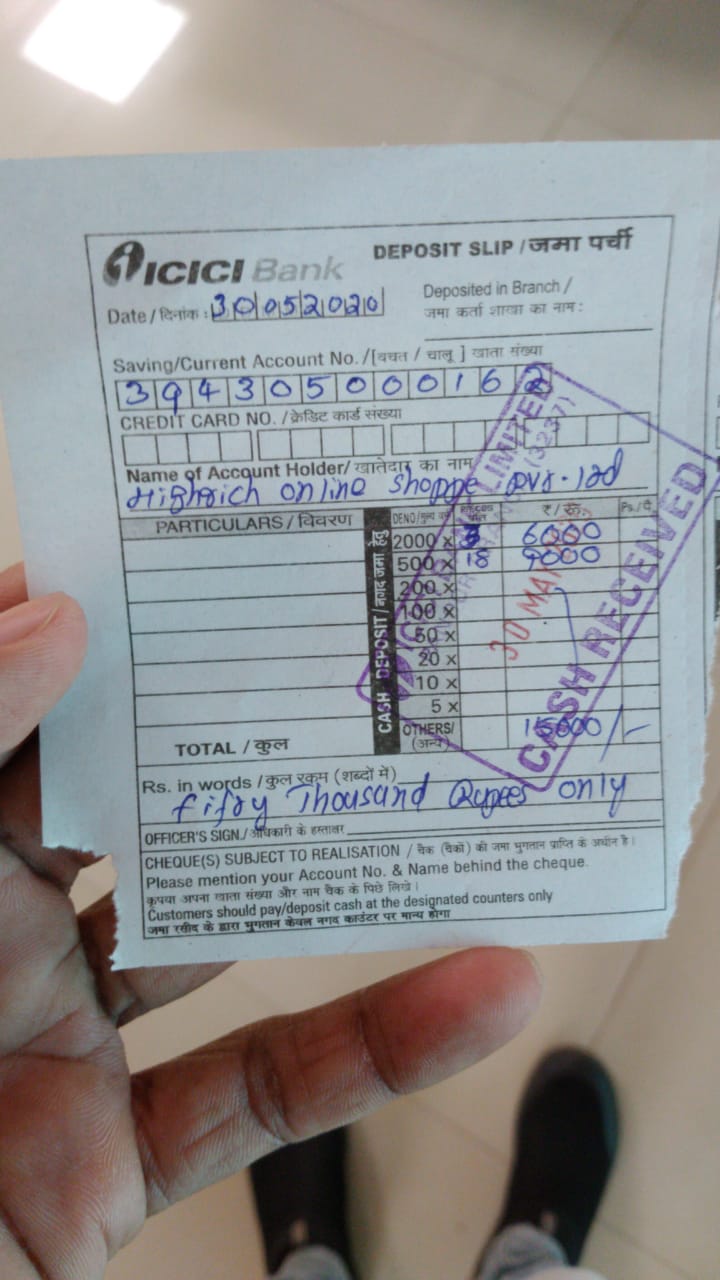 ICICI Bank
DEPOSIT SLIP / जमा पर्ची
Date / दिनांक : 30052020
Deposited in Branch /
जमा कर्ता शाखा का नाम :
Saving/Current Account No. / [बचत / चालू ] खाता संख्या
394305000162
CREDIT CARD NO. / क्रेडिट कार्ड संख्या
Name of Account Holder/ खातेदार का नाम
Highrich online shoppe pvt. ltd
PARTICULARS / विवरण
CASH DEPOSIT / नगद जमा हेतु
DENO/ ₹ / रु. Ps./पै.
2000 x 3 6000
500 x 18 9000
200 x
100 x
50 x
20 x
10 x
5 x
OTHERS/ 15000/-
(अन्य)
TOTAL / कुल
LIMITED
(3237)
30 MAY
CASH RECEIVED
Rs. in words / कुल रकम (शब्दों में)
fifty Thousand Rupees only
OFFICER'S SIGN./ अधिकारी के हस्ताक्षर
CHEQUE(S) SUBJECT TO REALISATION / चैक (चैकों) की जमा भुगतान प्राप्ति के अधीन है।
Please mention your Account No. & Name behind the cheque.
कृपया अपना खाता संख्या और नाम चैक के पिछे लिखे।
Customers should pay/deposit cash at the designated counters only
जमा रसीद के द्वारा भुगतान केवल नगद काउंटर पर मान्य होगा